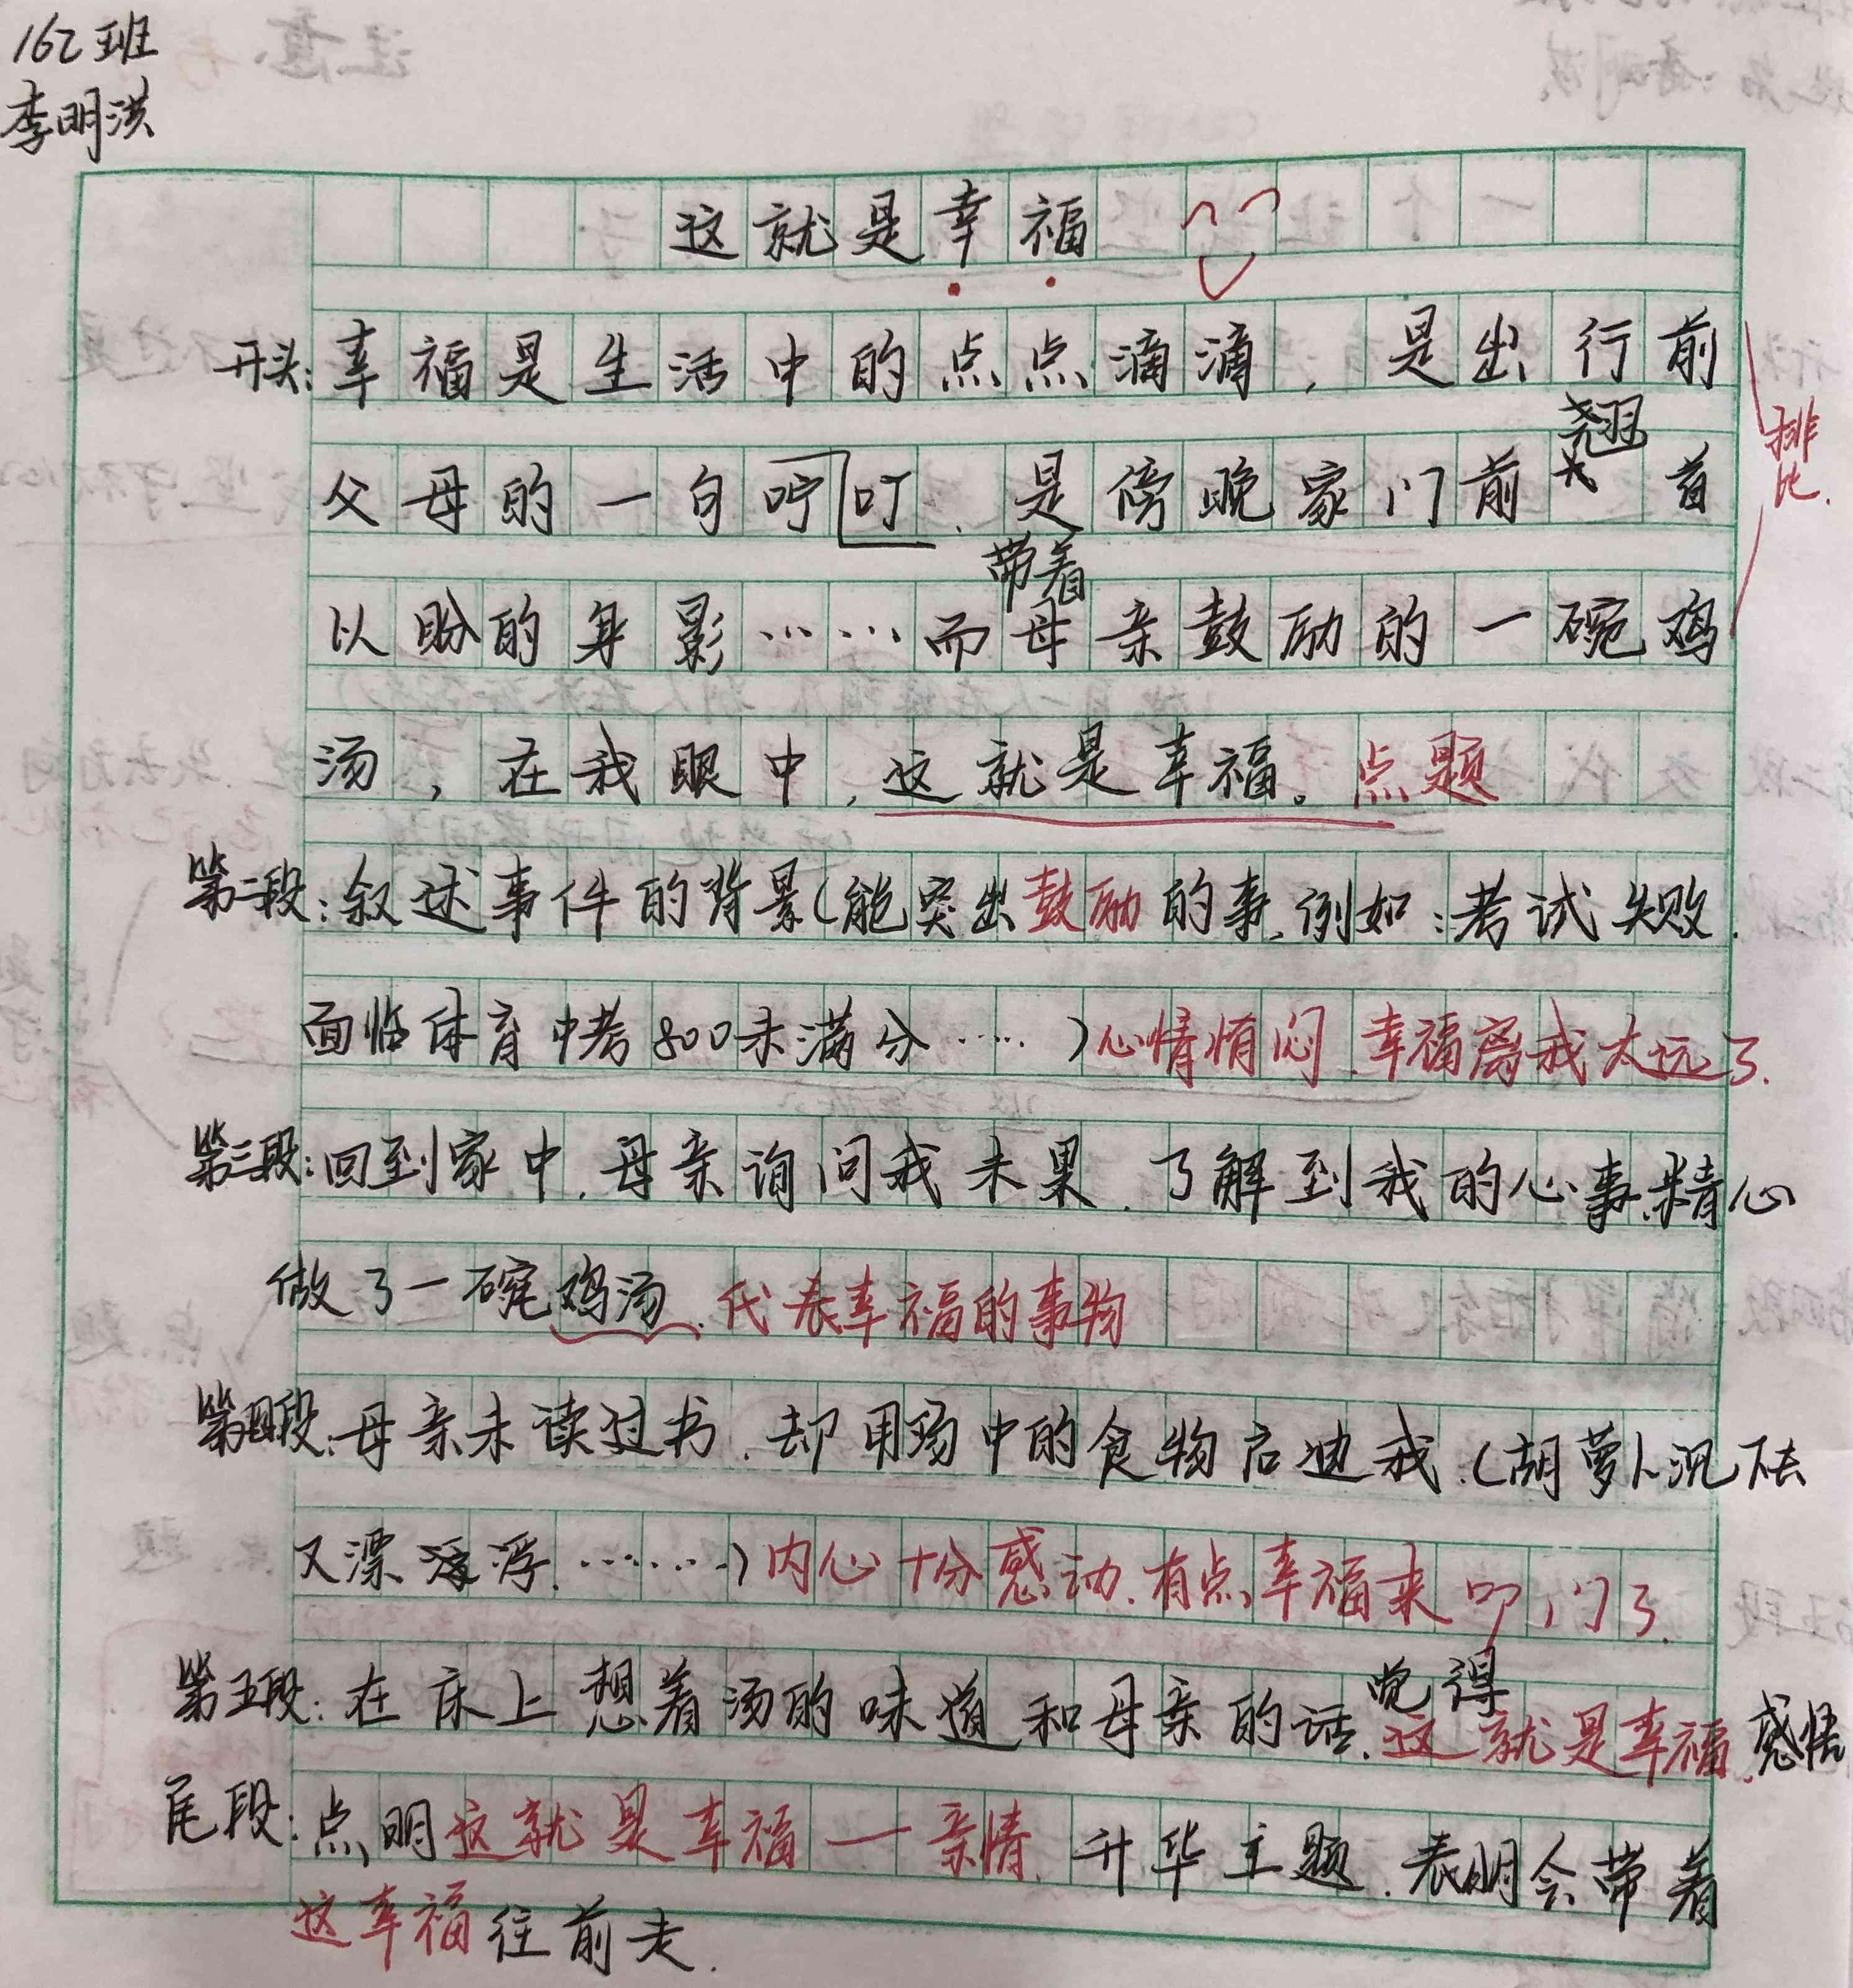 162班
李明洪
这就是幸福
开头:幸福是生活中的点点滴滴,是出行前
父母的一句咛叮、是傍晚家门前翘首
以盼的身影……而带着母亲鼓励的一碗鸡
汤,在我眼中,这就是幸福。点题
排比.
第二段:叙述事件的背景(能突出鼓励的事,例如:考试失败.
面临体育中考800未满分……)心情惆闷.幸福离我太远了.
第三段:回到家中.母亲询问我未果.了解到我的心事.精心
做了一碗鸡汤.代表幸福的事物
第四段:母亲未读过书.却用汤中的食物启迪我.(胡萝卜沉下去
又漂浮.……)内心十分感动.有点幸福来叩门了.
第五段:在床上想着汤的味道和母亲的话.觉得这就是幸福.感悟
尾段:点明这就是幸福—亲情.升华主题.表明会带着
这幸福往前走.